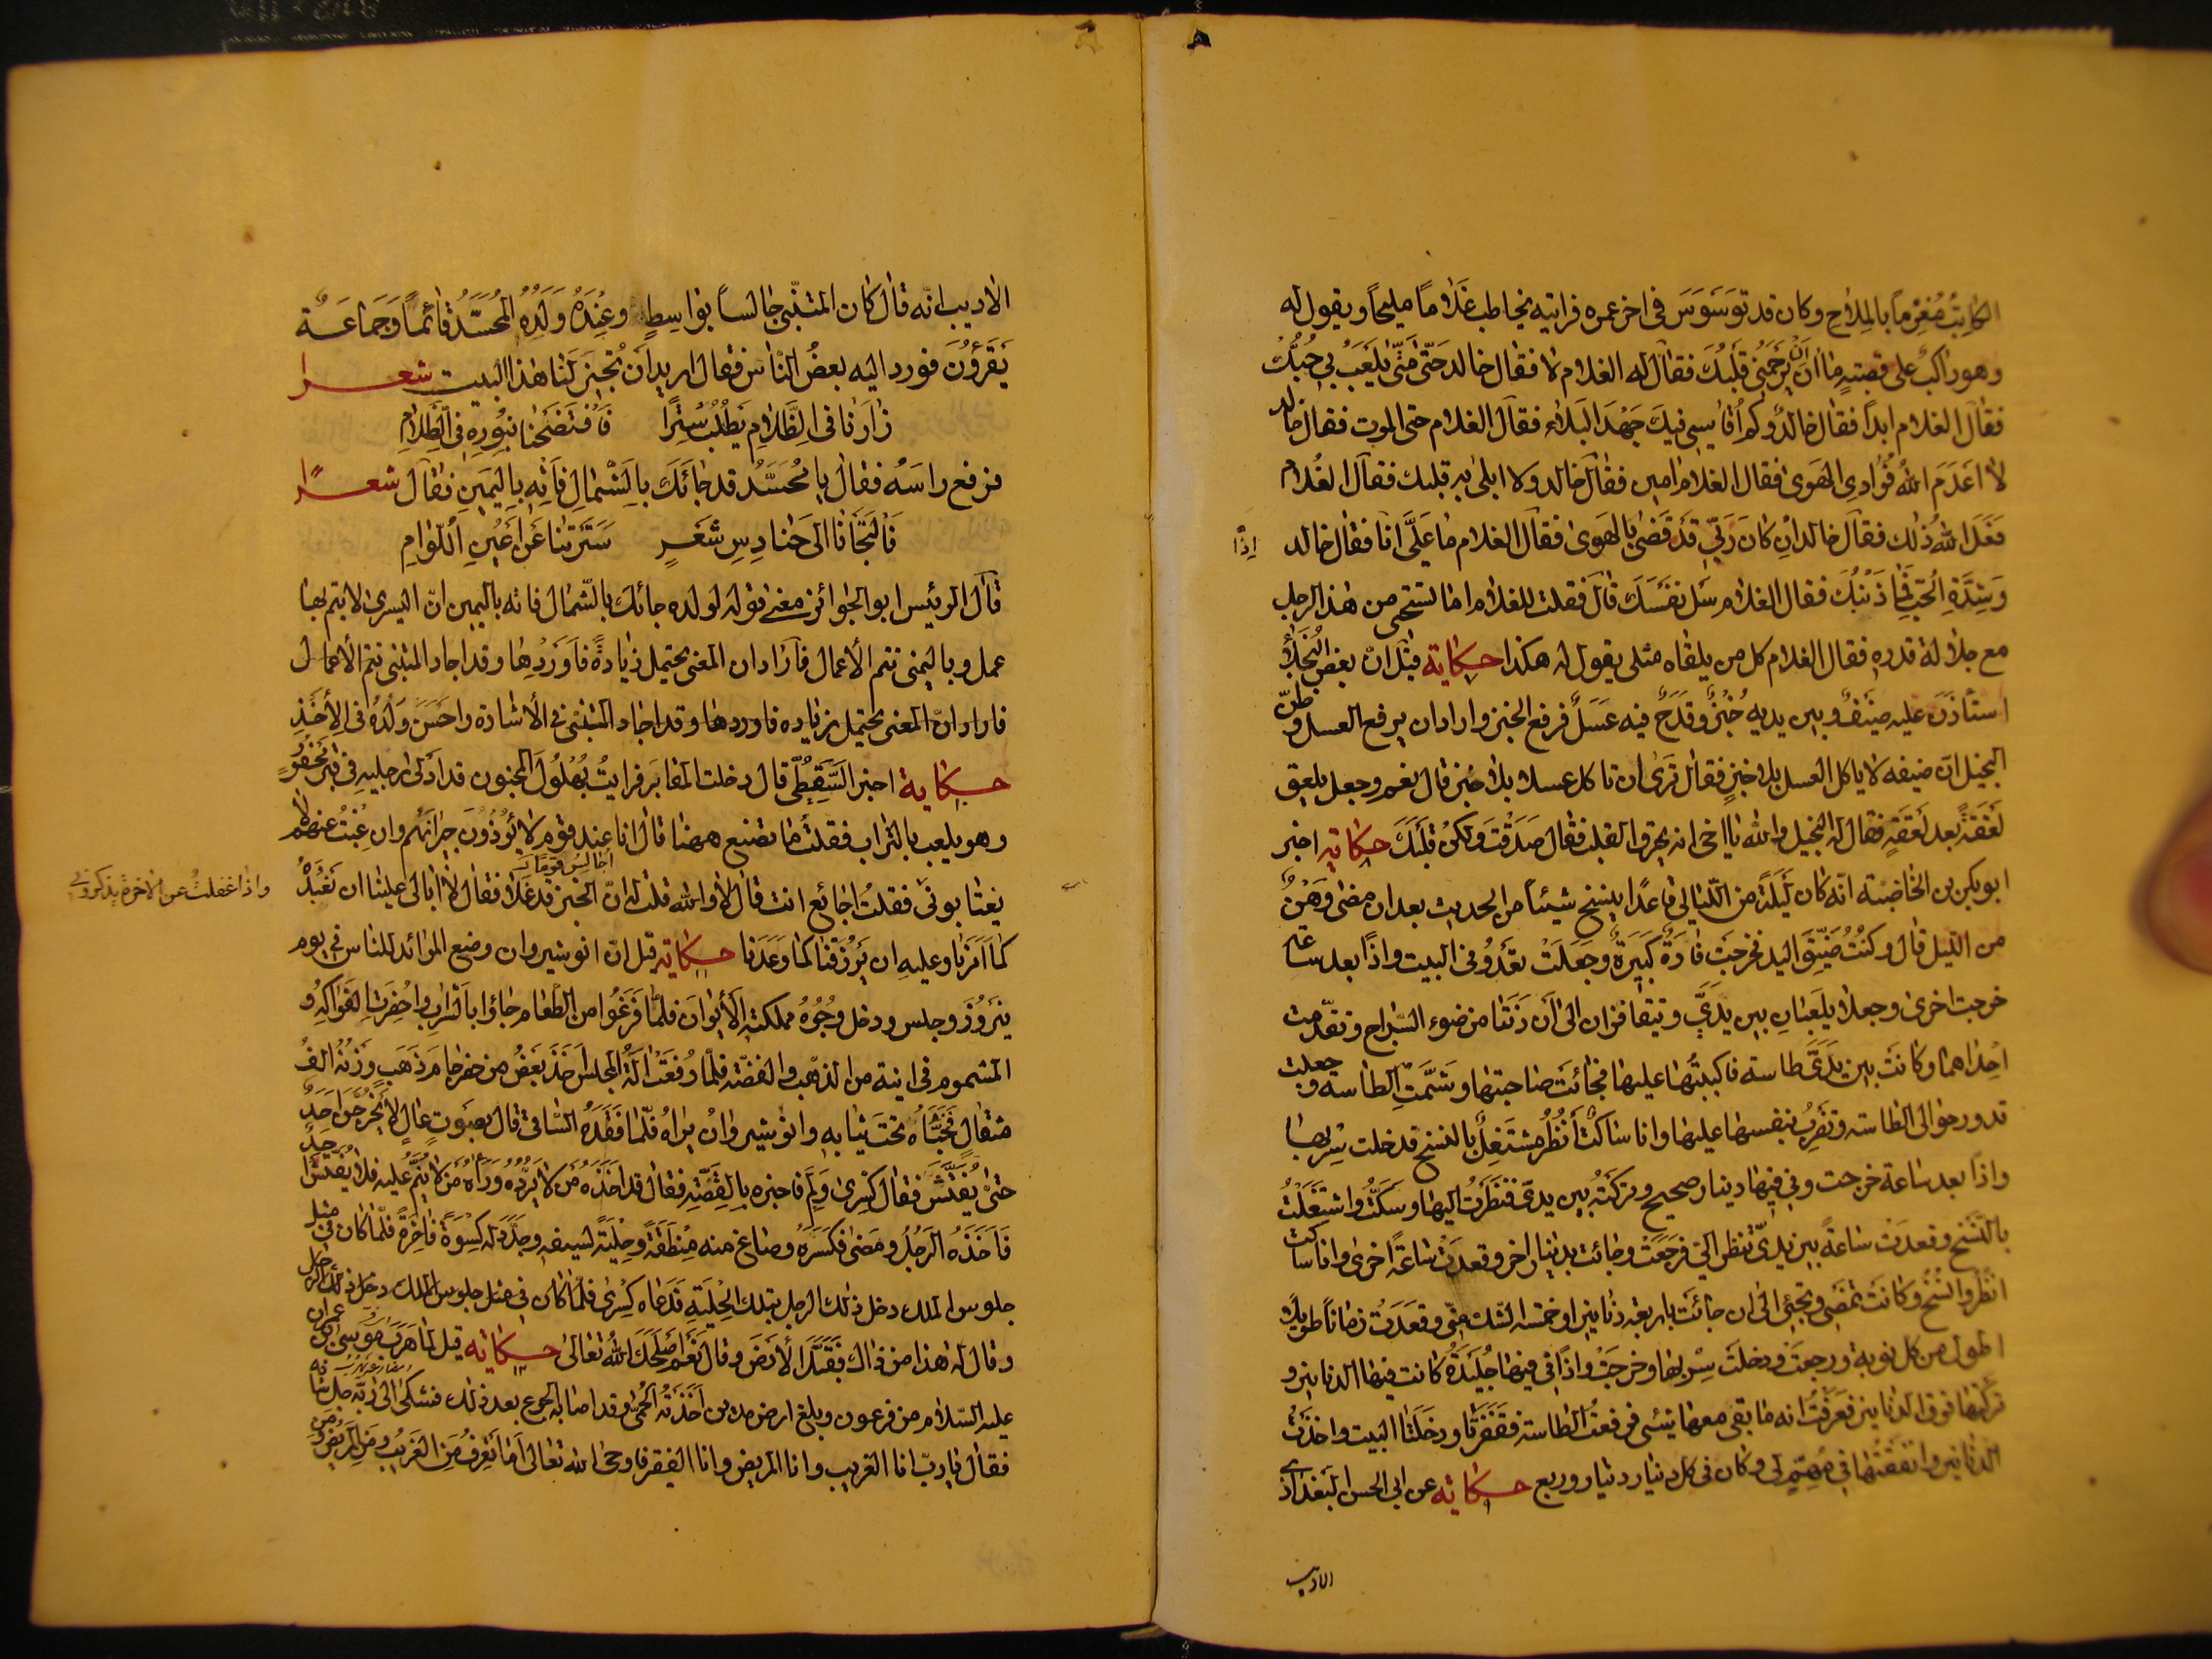 الكاتب مُغرمًا بالمِلاح وكان قد تَوَسْوَسَ في اخر عمره فرايته يخاطب غلاما مليحًا ويقول له
وهو راكبٌ على قصبته ما آن أن يرحمني قلبك فقال له الغلام لا فقال خالد حتى متى يلعب بي حُبُّك
فقال الغلام ابدًا فقال خالد وكم أقاسي فيك جَهْدَ البلاء فقال الغلام حتى الموت فقال خالد
لا اعدم الله فؤادي الهوى فقال الغلام امين فقال خالد ولا ابلى به قلبك فقال الغلام
فعل الله ذلك فقال خالد ان كان ربّي قد قضى بالهوى فقال الغلام ما عليَّ انا فقال خالد
إذًا
وشدّة الحب فما ذنبك فقال الغلام سَل نفسك قال فقلت للغلام اما تستحي من هذا الرجل
مع جلالة قدره فقال الغلام كل من يلقاه مثلي يقول له هكذا حكاية قيل انّ بعض البُخلاء
استأذن عليه ضيفٌ وبين يديه خُبزٌ وقدحٌ فيه عسلٌ فرفع الخبز واراد ان يرفع العسل وظنّ
البخيل ان ضيفه لا ياكل العسل بلا خبزٍ فقال ترى ان تاكل عسلا بلا خبز قال نعم وجعل يلعق
لَعْقَةً بعد لَعْقَةٍ فقال له البخيل والله يا اخي انه يحرق القلب فقال صدقتَ ولكن قلبَكَ حكاية اخبر
ابو بكر بن الخاضبة انّه كان ليلةً من الليالي قاعدًا ينسخ شيئًا من الحديث بعد ان مضى وَهْنٌ
من الليل قال وكنتُ ضيّق اليد فخرجت فارة كبيرة وجعلت تعدو في البيت واذا بعد ساعة
خرجت اخرى وجعلا يلعبان بين يديَّ ويتقافزان الى أن دَنَتا من ضوء السّراج وتقدّمت
احداهما وكانت بين يديَّ طاسة فاكببتُها عليها فجائت صاحبتها وشمّت الطاسة وجعلت
تدور حوالي الطاسة وتضرب بنفسها عليها وانا ساكت أنظر مشتغل بالنسخ فدخلت سربها
واذا بعد ساعة خرجت وفي فيها دينار صحيح وتركته بين يدي فنظرت اليها وسكتُّ واشتغلتُ
بالنسخ وقعدت ساعةً بين يديّ تنظر اليّ فرجعت وجائت بدينار اخر وقعدت ساعةً اخرى وانا ساكت
انظر وانسخ وكانت تمضي وتجئ الى ان جائت باربعة دنانير او خمسة الشك منّي وقعدت زمانًا طويلًا
اطول من كل نوبة ورجعت ودخلت سربها وخرجت واذا في فيها جُليدة كانت فيها الدنانير و
تركتها فوق الدنانير فعرفتُ انه ما بقي معها شئ فرفعت الطاسة فقفزتا ودخلتا البيت واخذت
الدنانير وانفقتها في مُهمّ لي وكان في كل دينار دينار وربع حكاية عن ابي الحسن البغدادي
الاديب
الاديب انّه قال كان المتنبّي جالسًا بواسِط وعنده ولده المُحسَّد قائمًا وجماعة
يقرؤن فورد اليه بعض الناس فقال اريد ان تُجيز لنا هذا البيت شعرا
زارنا في الظّلام يطلُب سترًا فافتضحنا بنوره في الظّلام
فرفع راسه فقال يا مُحسّد قد جائك بالشمال فأته باليمين فقال شعرًا
فالتجأنا الى حنادس شعرٍ سترتنا عن أعين اللوّام
قال الرئيس ابو الجوائز معنى قوله لولده جائك بالشمال فاته باليمين ان اليسرى لا يتم بها
عمل وباليمنى تتم الأعمال فأراد ان المعنى يحتمل زيادة فأوردها وقد اجاد المتنبي تتم الأعمال
فاراد انّ المعنى يحتمل زياده فاوردها وقد اجاد المتنبي في الأشارة واحسن ولده في الأخذ
حكاية اخبر السَّقَطيّ قال دخلت المقابر فرايت بُهلُولَ المجنون قد ادلى رجليه في قبر محفور
وهو يلعب بالتراب فقلت ما تصنع ههنا قال انا عند قوم لا يؤذون جيرانهم وان غبت عنهم لا
أجالس قوما
يغتابوني فقلت اجائع انت قال لا والله قلت له انّ الخبز قد غلا فقال لا ابالي علينا ان نعبده
واذا غفلت عن الاخرة يذكروني
كما أمرنا وعليه ان يرزقنا كما وعدنا حكاية قيل انّ انوشيروان وضع الموائد للناس في يوم
نيروز وجلس ودخل وجوه مملكته الأيوان فلمّا فرغوا من الطعام جاؤا بالشراب واحضرت الفواكه و
المشموم في انية من الذهب والفضّة فلمّا رُفعت آلة المجلس اخذ بعض من حضر جام ذهب وزنه الف
مثقال فخبّأه تحت ثيابه وانوشيروان يراه فلمّا فقده الساقي قال بصوت عال لا يخرجنّ احدٌ
حتى يُفتّش فقال كسرى ولِمَ فاخبره بالقصّة فقال قد اخذه من لا يردّه ورآه من لا ينمّ عليه فلا يفتّش احدٌ
فاخذه الرجل ومضى فكسره وصاغ منه مِنطقة وحِلية لسيفه وجدّد له كِسوة فاخرة فلمّا كان في مثل
جلوس الملك دخل ذلك الرجل بتلك الحلية فدعاه كسرى فلما كان في مثل جلوس الملك دخل ذلك الرجل
وقال له هذا من ذاك فقبّل الأرض وقال نعم اصلحك الله تعالى حكاية قيل لما هرب موسى بن عمران
عليه السّلام من فرعون وبلغ ارض مدين اخذته الحُمّى وقد اصابه الجوع بعد ذلك فشكى الى ربّه جل شانه
فقال يا ربّ انا الغريب وانا المريض وانا الفقير فاوحى الله تعالى أما تعرف من الغريب ومن المريض ومن